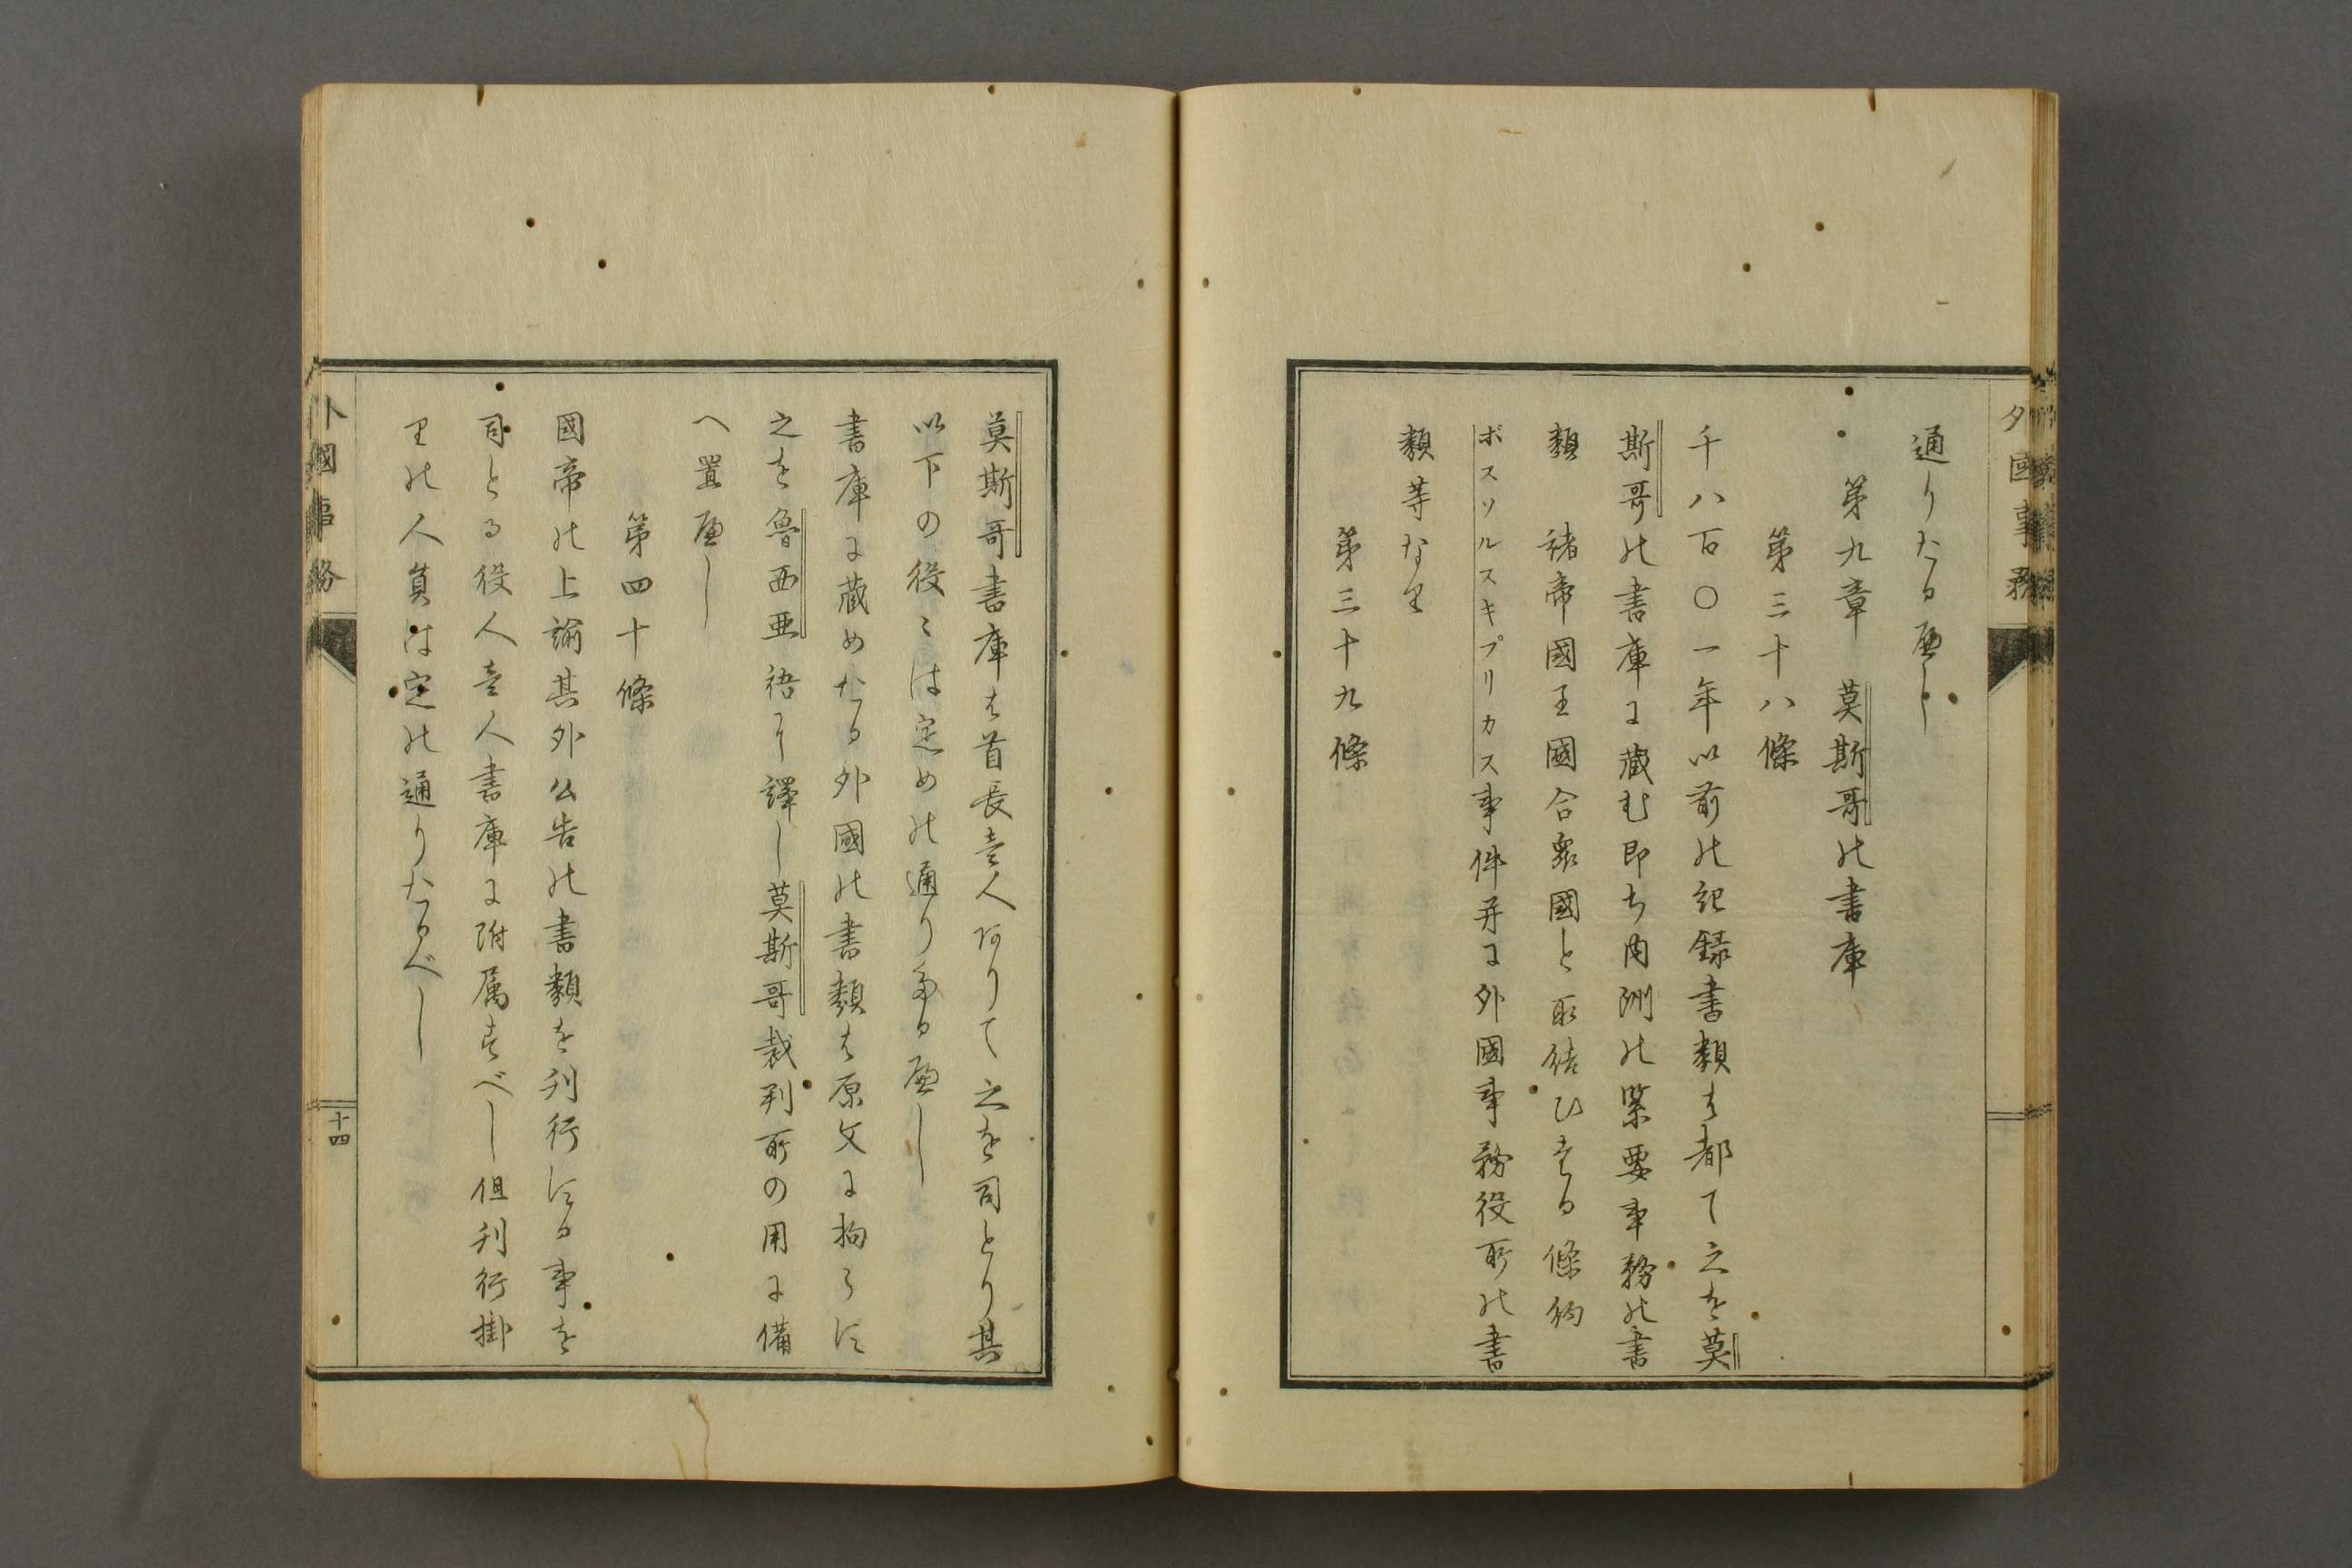 外國事務
通りたる可し
第九章　莫斯哥の書庫
第三十八條
千八百〇一年以前の記録書類は都て之を莫
斯哥の書庫に蔵む即ち内洲の緊要事務の書
類　諸帝國王國合衆國と取結ひたる條約
ポスソルスキプリカス事件并に外國事務役所の書
類等なり
第三十九條
莫斯哥書庫は首長壹人ありて之を司とり其
以下の役々は定めの通りなる可し
書庫に蔵めたる外國の書類は原文に拘らす
之を魯西亜語に譯し莫斯哥裁判所の用に備
へ置可し
第四十條
國帝の上諭其外公告の書類を刊行する事を
司とる役人壹人書庫に附属すべし但刊行掛
りの人員は定の通りたるべし
外國事務
十四